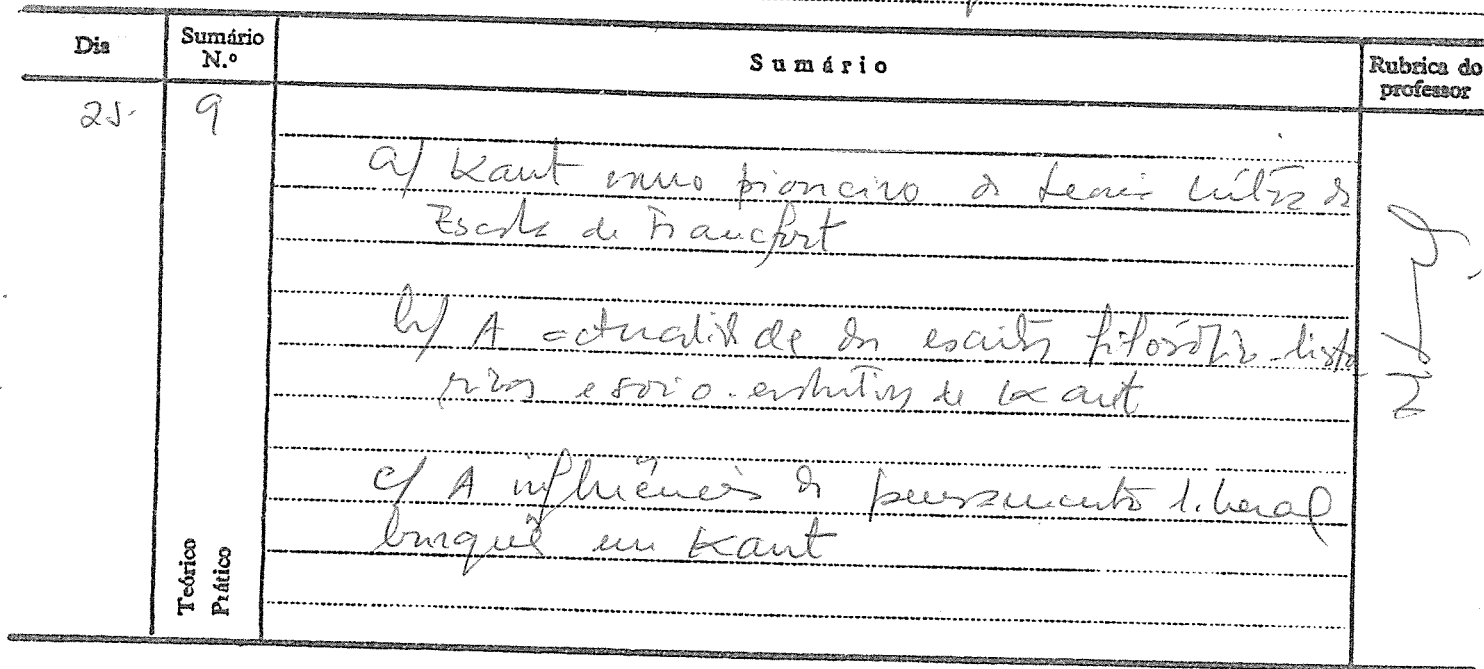 Dia
Sumário N.º
Sumário
Rubrica do professor
25. 9
a) Kant como pioneiro da teoria crítica da
Escola de Francfort
b) A actualidade dos escritos filosófico-histó
ricos e socio-evolutivos de Kant
c) A influência do pensamento liberal
burguês em Kant
Teórico
Prático